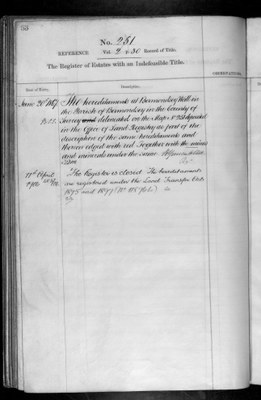 No. 281
REFERENCE Vol. 2 p. 30 Record of Title.
The Register of Estates with an Indefeasible Title.
Date of Entry. Description. OBSERVATIONS.
June 20th 1867 The hereditaments at Bermondsey Wall in
the Parish of Bermondsey in the County of
Surrey delineated on the Map deposited
in the Office of Land Registry as part of the
description of the same hereditaments and
thereon edged with red Together with the mines
and minerals under the same.
17th April The Register is closed The hereditaments
are registered under the Land Transfer Acts
1875 and 1897